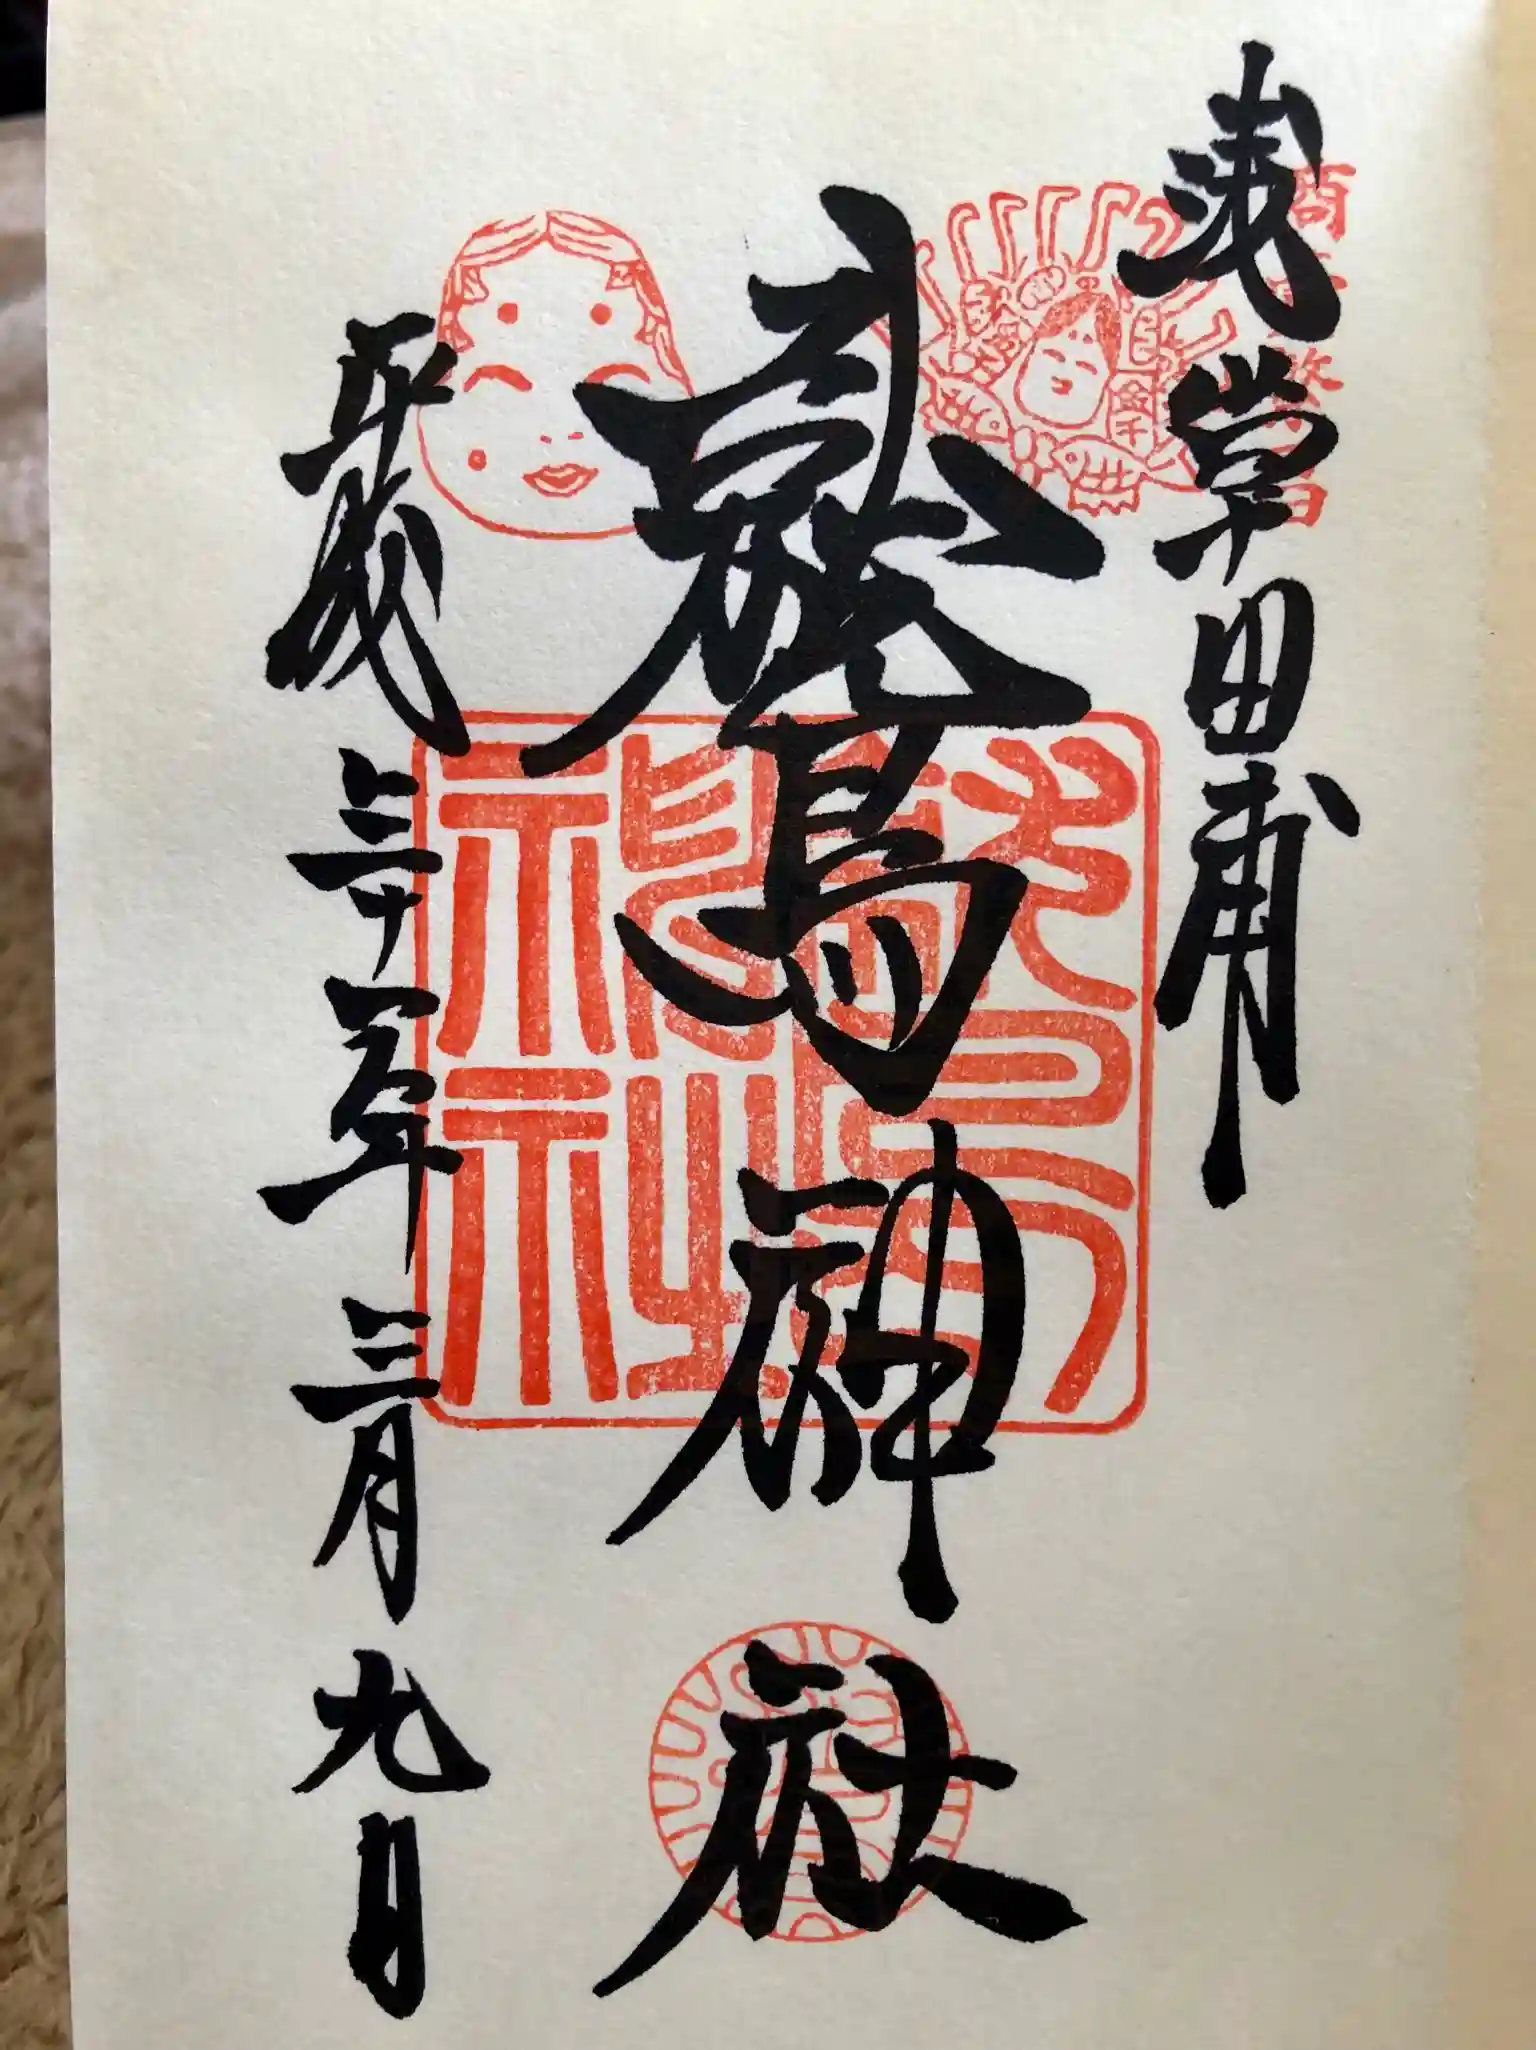 浅草田甫
鷲神社
平成三十年三月九日
鷲神社